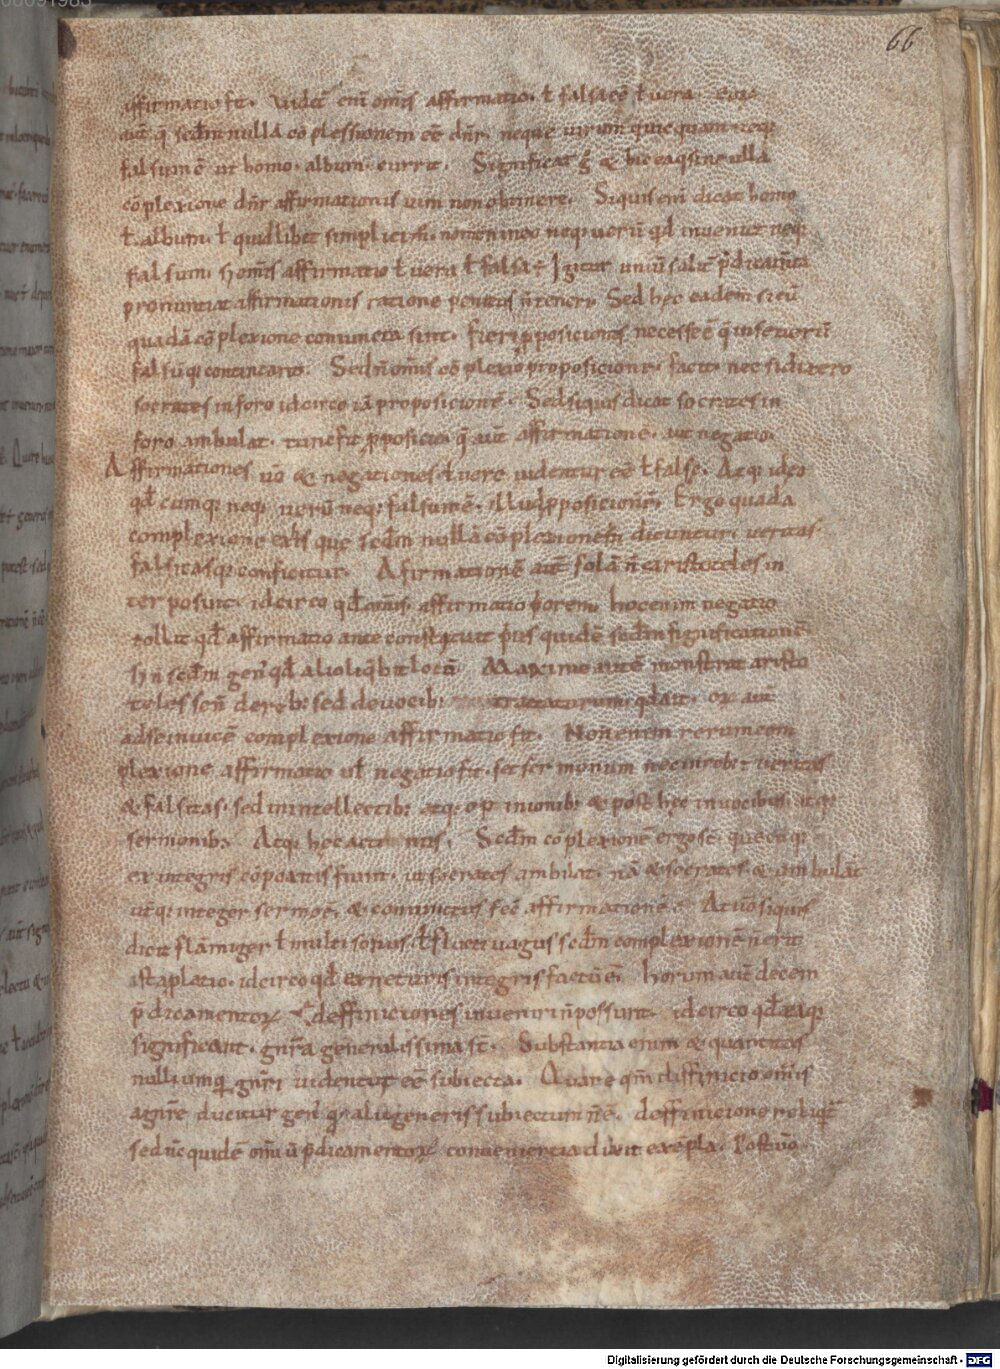 66
affirmatio fit. videt̄ eni omīs affirmatio. ł falsa eē ł vera
aut̄ q̄ secd̄m nullā cōplessionem eē dn̄r. neque uirum quic quam neq;
falsum ē ut homo. album. currit. Significat ḡ & hic eaq; sine ulla
cōplexione dn̄r affirmationis uim non obtinere. Siquis eni dicat homo
ł album. ł quidlibet simpliciū. nomen in eo neq; uerū qd̄ inuenitur neq;
falsum. omīs affirmatio ł vera ł falsa ē Igitur unū solū p̄dicam̄ta
pronuntiat affirmationis ratione penitus n̄ teneri. Sed hęc eadem si eū
quadā cōplexione coniuncta sint. fieri p̄posiciones necesse ē q̄
falsūq; contineant. Sed n̄ omīs cōplexio proposicionē. facit. nec si dixero
socrates in foro idcirco iā proposicionē. Sed siquis dicat socrates in
foro ambulat. tunc fit p̄posicio. q̄ aut̄ affirmatione. aut negatio.
Affirmationes ūo & negationes ł vere videntur eē ł false. Atq; ideo
qd̄cumq; neq; verū neq; falsum ē. illud p̄posicio n̄. Ergo quada
complexione ex his quę secd̄m nullā cōplexionem dicuntur. veritas
falsitasq; conficitur. Afirmationē aut̄ solā n̄ aristoteles in
terposuit. idcirco qd̄ omīs affirmatio hoc enim negatio
tollit qd̄ affirmatio ante constituit p̄us quidē secd̄m significationē
n̄ secd̄m gen̄ qd̄ alio loco Maxime autē monstrat aristo
teles de reb; sed de uocib; tractaturum. qd̄ ait. aut̄
ad se inuicē complexione affirmatio fit. Non enim rerum com
plexione affirmatio ul̄ negatio fit. set sermonum nec in reb; veritas
& falsitas. sed in intellectib; atq; opinionib; & post hęc in uocibus atq;
sermonib; Atq; hęc actenus. Secd̄m cōplexionē ergo st̄. quecūq;
ex integris cōpositis fiunt. ut socrates ambulat. nā & socrates. & ambulat̄
ut̄q; integer sermo ē. & coniunctus fec̄ affirmationē. At ūo siquis
dicit flāmiger ł multisonus ł fluctiuagus secd̄m complexionē n̄ erit
ista platio. idcirco qd̄ ex neturis integris factū ē. horum aut̄ decem
p̄dicamentoꝝ deffiniciones inueniri n̄ possunt. idcirco qd̄ ea q̄
significant. gn̄ra generalissima st̄. Substantia enim & quantitas
nulli umq̄ gn̄ri videntur eē subiecta. Quare qm̄ diffinicio omīs
a gn̄re ducitur gen̄ q̄ alii generis subiectum n̄ ē. deffinicione relinq̄t
sed nc̄ quidē om̄iū p̄dicamentoꝝ conuenientia dixit exēpla. Post ūo
Digitalisierung gefördert durch die Deutsche Forschungsgemeinschaft - DFG